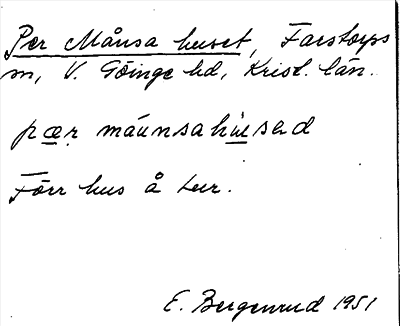 Per Månsa huset, Farstorps
sn, V. Göinge hd, Krist. län.
pær måunsahusəd
Förr hus å
E. Bergenrud 1951